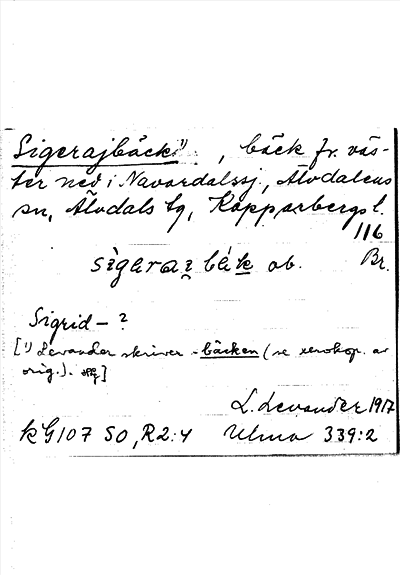 Sigerajbäck¹⁾, bäck fr. väs-
ter ned i Navardalssj., Älvdalens
sn, Älvdals tg, Kopparbergs l.
116
sìgerai̯ bék ob. Br.
Sigrid – ?
[¹⁾ Levander skriver -bäcken (se xerokop. av
orig.).]
L. Levander 1917
KG107 SO, R2:4 Ulma 339:2